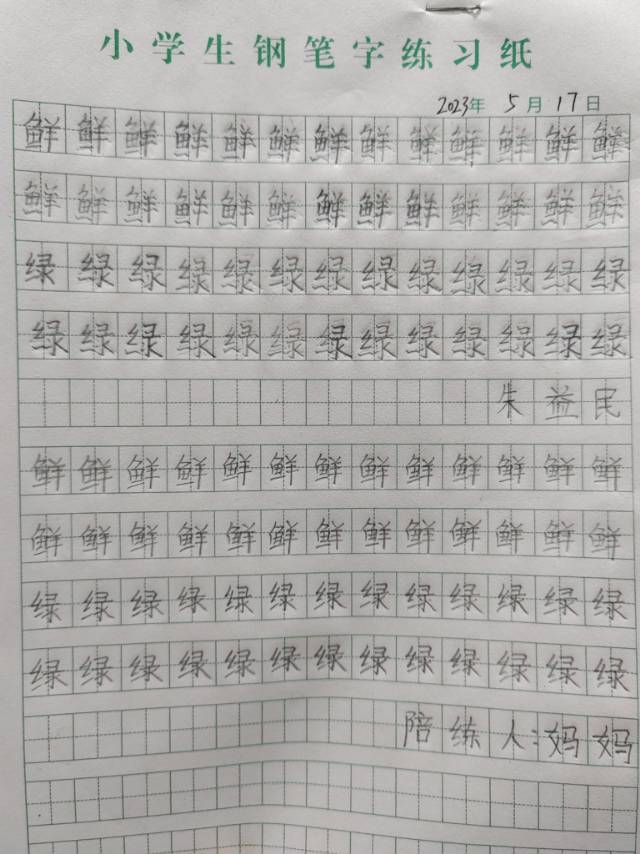 小学生钢笔字练习纸
2023年5月17日
鲜鲜鲜鲜鲜鲜鲜鲜鲜鲜鲜鲜鲜
鲜鲜鲜鲜鲜鲜鲜鲜鲜鲜鲜鲜鲜
绿绿绿绿绿绿绿绿绿绿绿绿绿
绿绿绿绿绿绿绿绿绿绿绿绿绿
朱益民
鲜鲜鲜鲜鲜鲜鲜鲜鲜鲜鲜鲜鲜
鲜鲜鲜鲜鲜鲜鲜鲜鲜鲜鲜鲜鲜
绿绿绿绿绿绿绿绿绿绿绿绿绿
绿绿绿绿绿绿绿绿绿绿绿绿绿
陪练人:妈妈